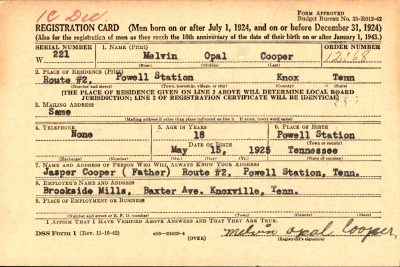 1C Dec
FORM APPROVED
Budget Bureau No. 33-R012-42
REGISTRATION CARD (Men born on or after July 1, 1924, and on or before December 31, 1924)
(Also for the registration of men as they reach the 18th anniversary of the date of their birth on or after January 1, 1943.)
SERIAL NUMBER 1. NAME (Print) ORDER NUMBER
W 221 Melvin Opal Cooper
(First) (Middle) (Last)
2. PLACE OF RESIDENCE (Print)
Route #2. Powell Station Knox Tenn
(Number and street) (Town, township, village, or city) (County) (State)
[THE PLACE OF RESIDENCE GIVEN ON LINE 2 ABOVE WILL DETERMINE LOCAL BOARD
JURISDICTION; LINE 2 OF REGISTRATION CERTIFICATE WILL BE IDENTICAL]
3. MAILING ADDRESS
Same
(Mailing address if other than place indicated on line 2. If same, insert word same)
4. TELEPHONE 5. AGE IN YEARS 6. PLACE OF BIRTH
None 18 Powell Station
DATE OF BIRTH (Town or county)
May 15, 1925 Tennessee
(Exchange) (Number) (Mo.) (Day) (Yr.) (State or country)
7. NAME AND ADDRESS OF PERSON WHO WILL ALWAYS KNOW YOUR ADDRESS
Jasper Cooper ( Father) Route #2, Powell Station, Tenn.
8. EMPLOYER'S NAME AND ADDRESS
Brookside Mills, Baxter Ave. Knoxville, Tenn.
9. PLACE OF EMPLOYMENT OR BUSINESS
(Number and street or R. F. D. number) (Town) (County) (State)
I AFFIRM THAT I HAVE VERIFIED ABOVE ANSWERS AND THAT THEY ARE TRUE.
DSS Form 1 (Rev. 11-16-42) (OVER) Melvin Opal Cooper
(Registrant's signature)